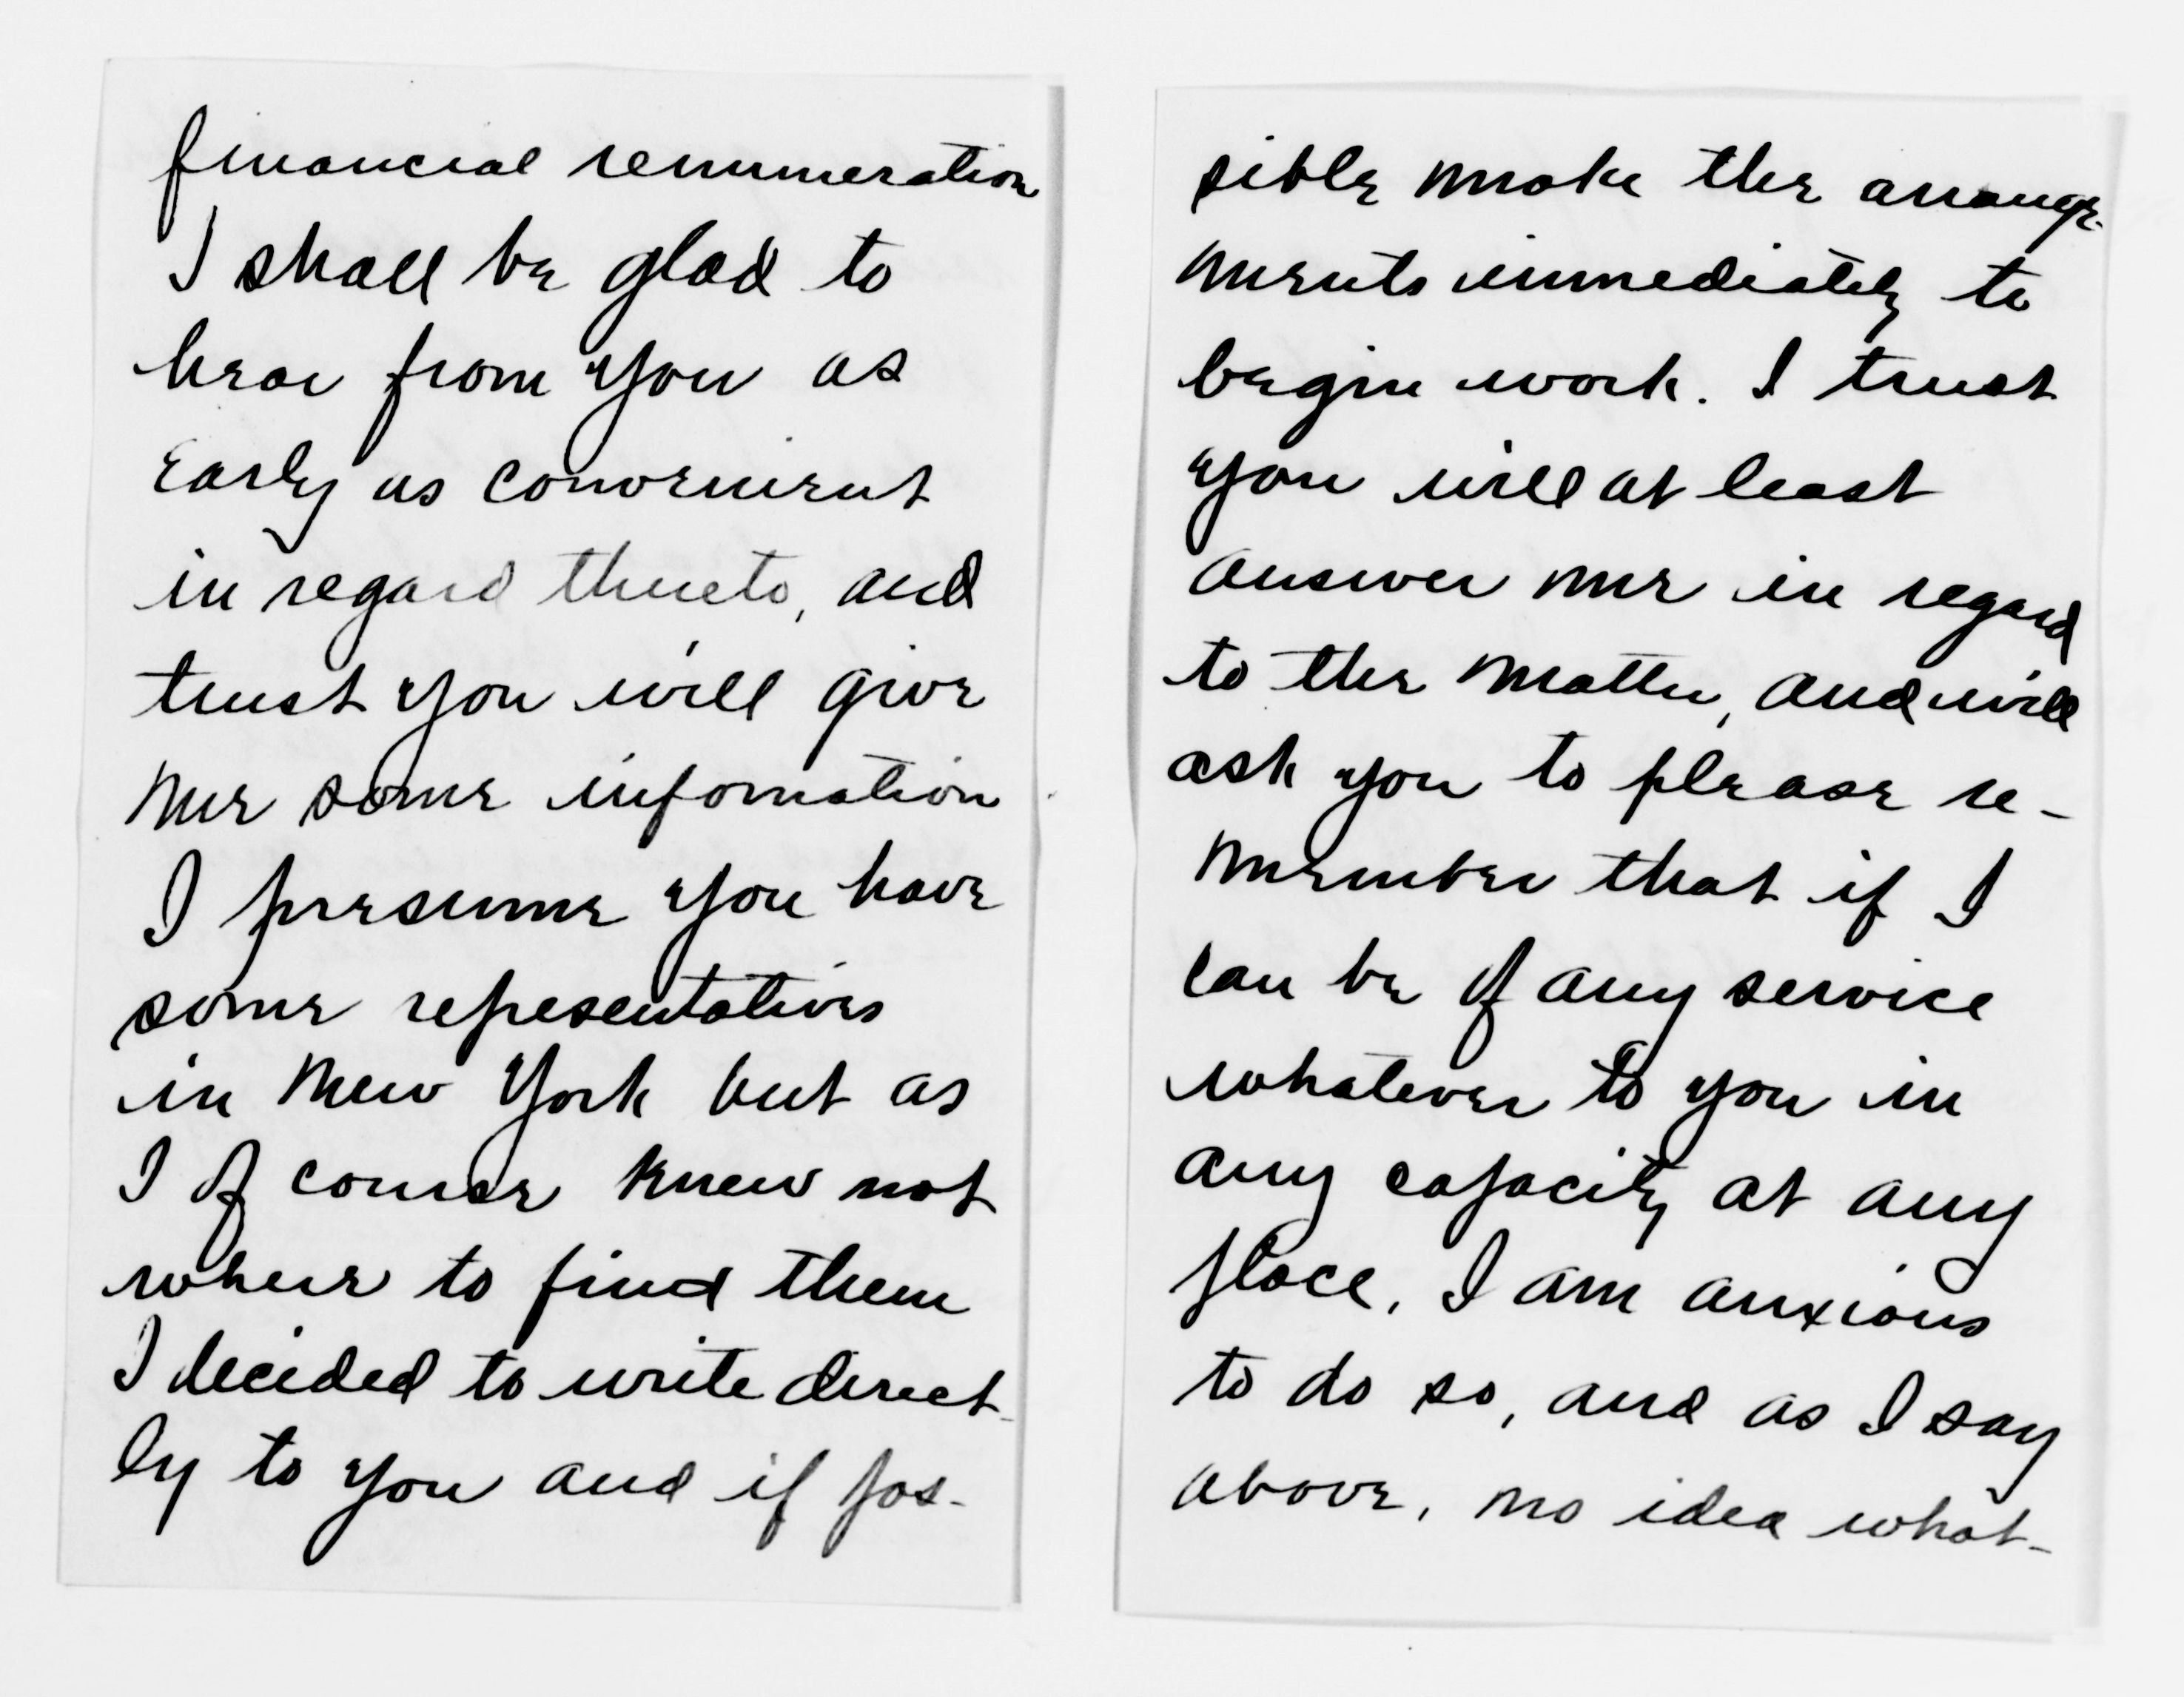 financial renumeration
I shall be glad to
hear from you as
early as convenient
in regard thereto, and
trust you will give
me some infomation
I presume you have
some representatives
in New York but as
I of course knew not
where to find them
I decided to write direct-
ly to you and if pos-
sible make the arrange-
ments immediately to
begin work. I trust
you will at least
answer me in regard
to the matter, and will
ask you to please re-
member that if I
can be of any service
whatever to you in
any capacity at any
place, I am anxious
to do so, and as I say
above, no idea what-